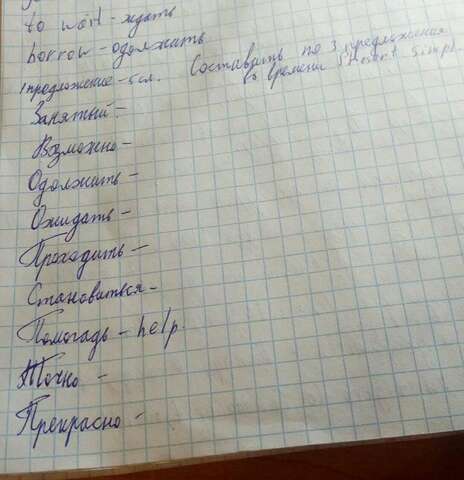 to wait - ждать
borrow - одолжить
1 предложение - 5 сл.
Составить по 3 предложения
во времени Present Simpl.
Занятый -
Возможно -
Одолжить -
Ожидать -
Проходить -
Становиться -
Помогадь - help.
Точно -
Прекрасно -